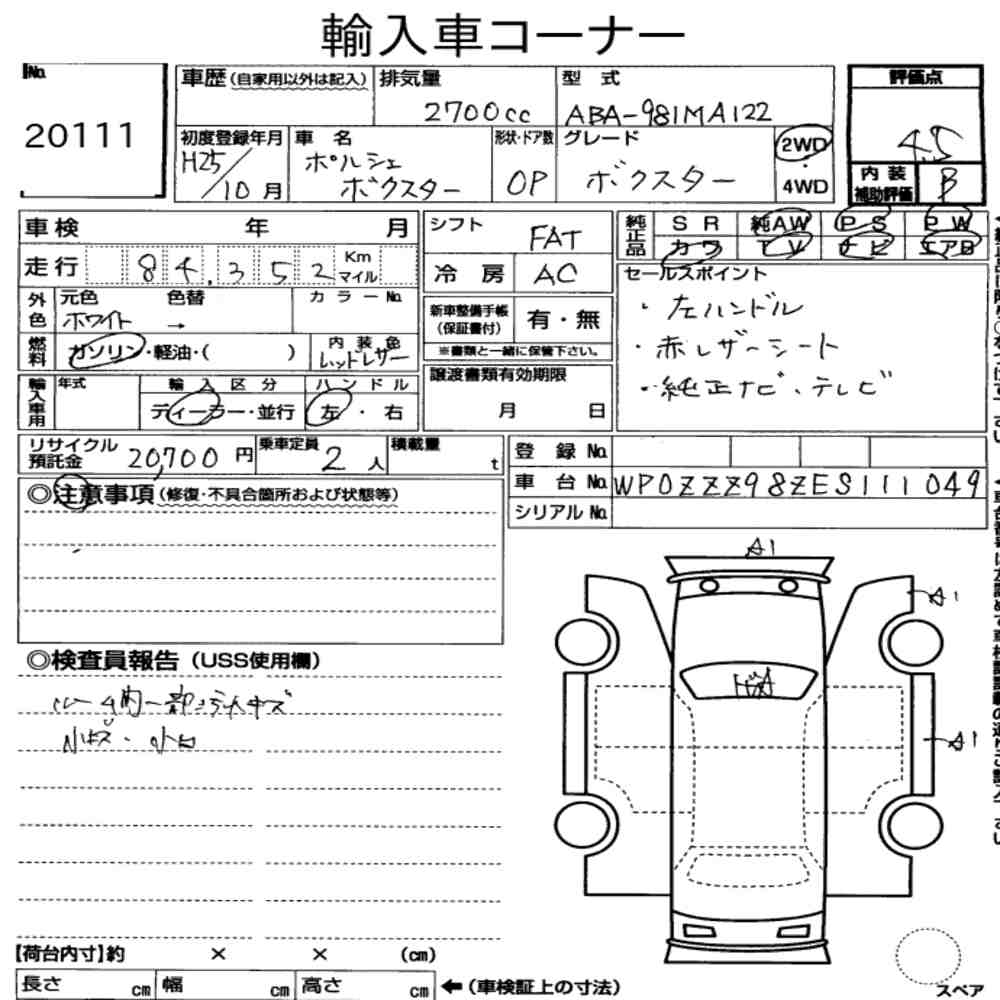 輸入車コーナー
No. 20111
車歴 (自家用以外は記入)
排気量 2700cc
型式 ABA-981MA122
評価点 4.5
初度登録年月 H25/10月
車名 ポルシェ ボクスター
形状・ドア数 OP
グレード ボクスター
2WD・4WD
内装補助評価 B
車検 年 月
走行 84,352 Km マイル
シフト FAT
冷房 AC
純正品 SR 純AW PS PW
カワ TV ナビ エアB
外色 元色 ホワイト → 色替 カラーNo.
燃料 ガソリン・軽油・( )
内装色 レッドレザー
新車整備手帳(保証書付) 有・無
※書類と一緒に保管下さい。
セールスポイント
・左ハンドル
・赤レザーシート
・純正ナビ・テレビ
輸入車用 年式 輸入区分 ディーラー・並行
ハンドル 左・右
譲渡書類有効期限 月 日
リサイクル預託金 20,700円
乗車定員 2人
積載量 t
登録No.
車台No. WP0ZZZ98ZES111049
シリアルNo.
◎注意事項 (修復・不具合箇所および状態等)
◎検査員報告 (USS使用欄)
A1
A1
A1
【荷台内寸】約 × × (cm)
長さ cm 幅 cm 高さ cm ←(車検証上の寸法)
スペア